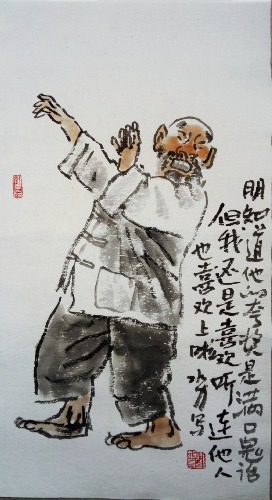 明知道他的夸奖是满口鬼话
但我还是喜欢听连他人
也喜欢上啦
写